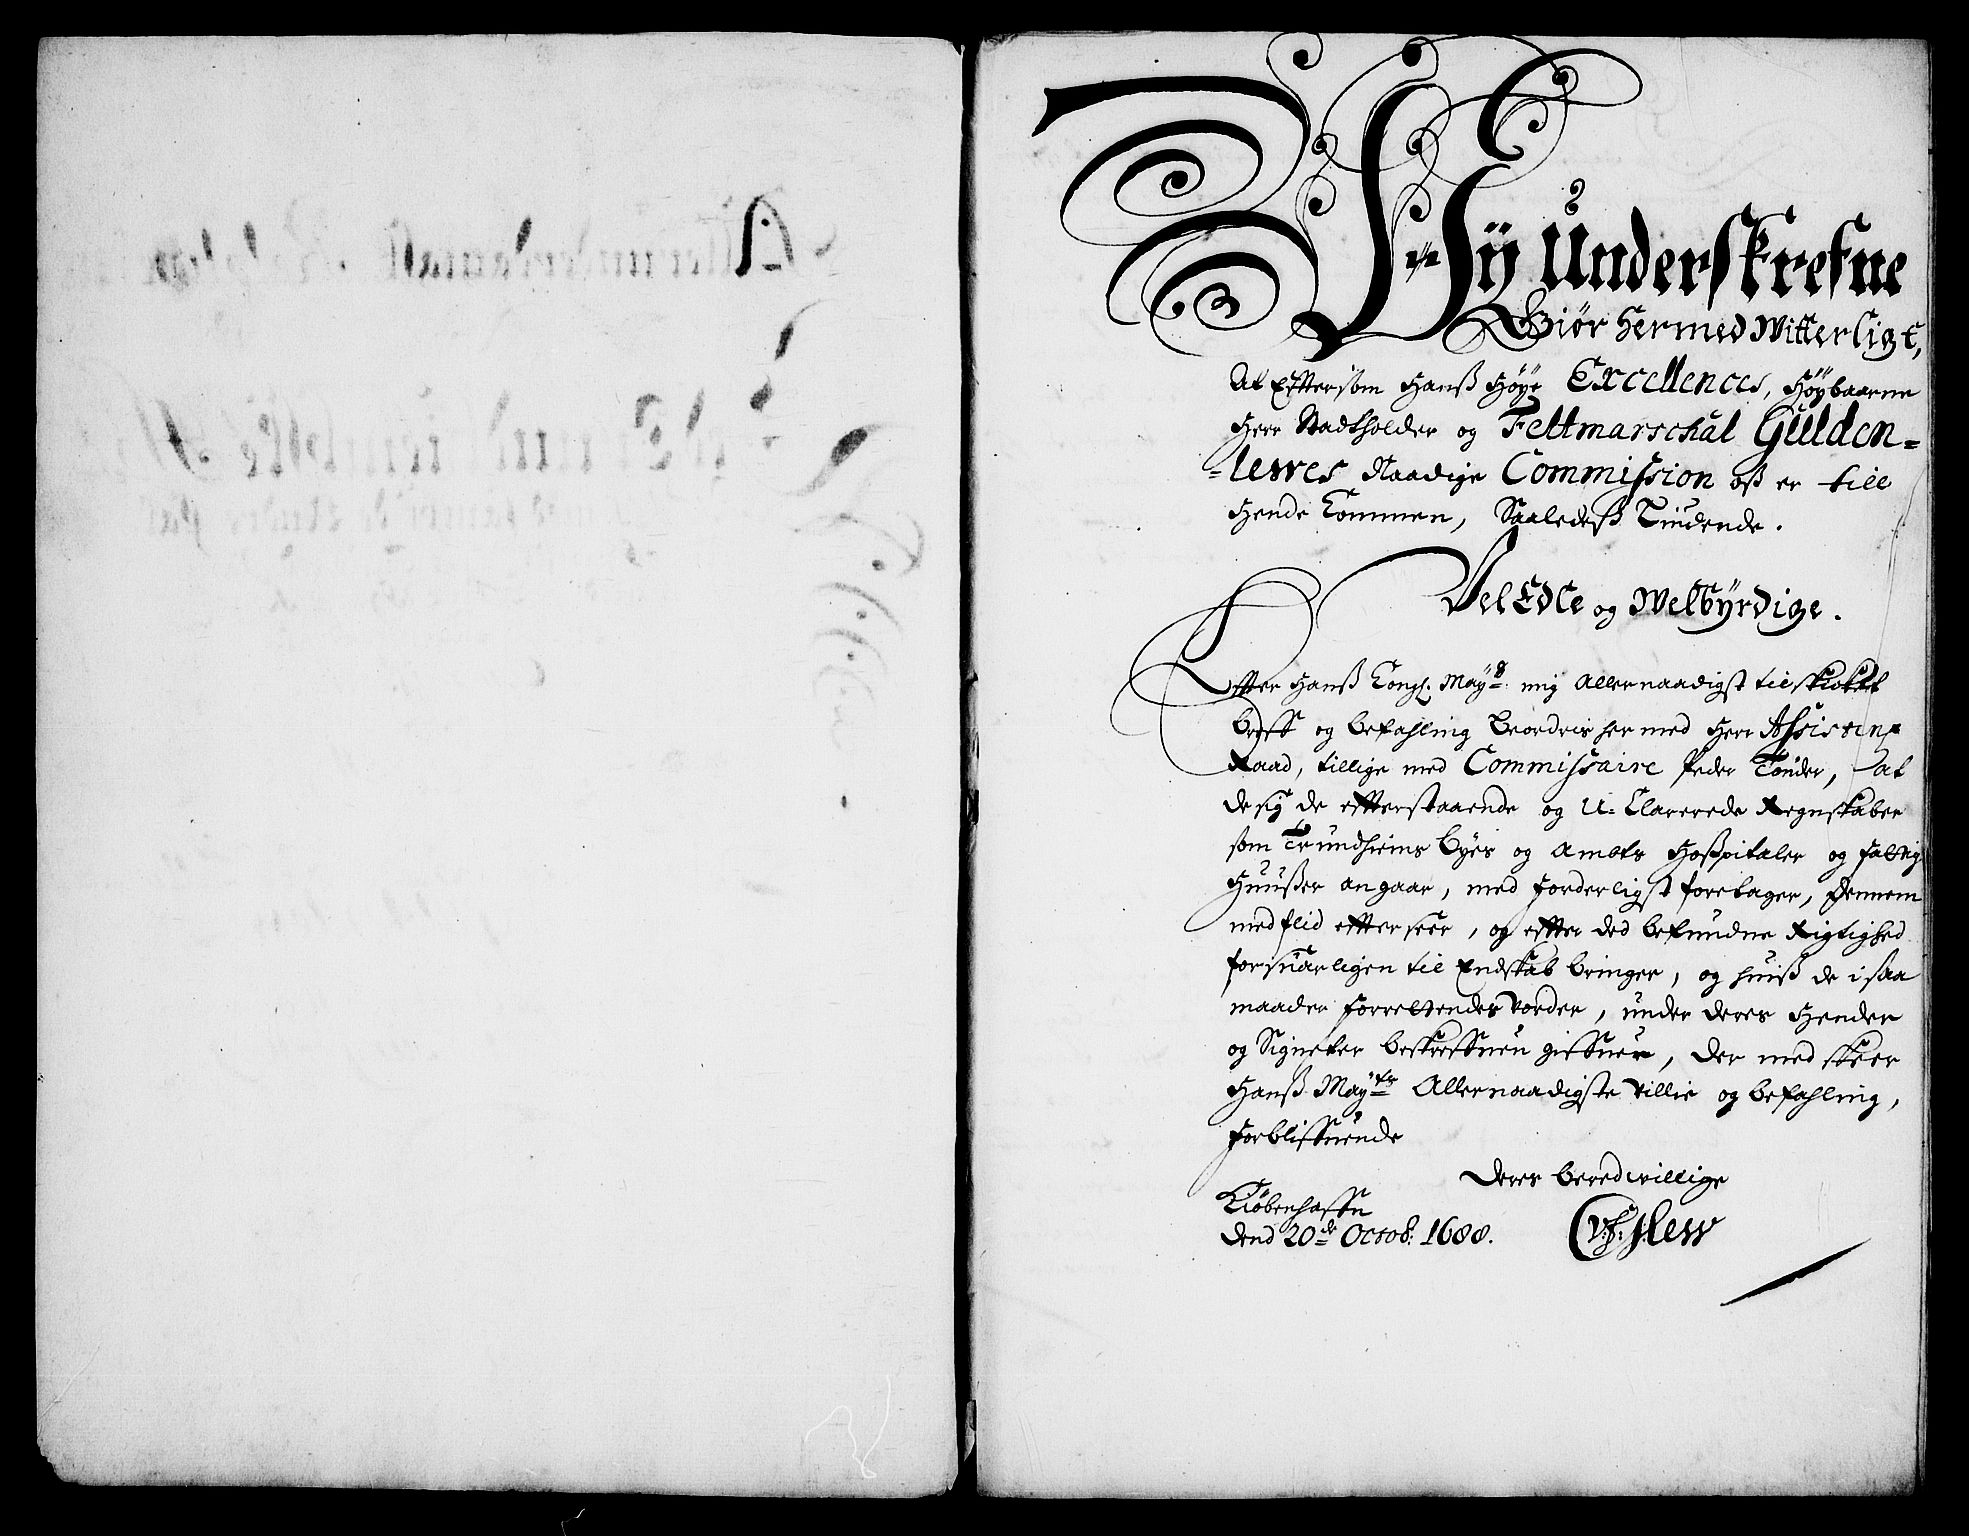 Wÿ Underskrefne
Giör hermed Witterligt,
At Efftersom Hanß Höÿe Excellences, Höÿbaarne
Herr Stadtholder og Feltmarschal Gülden=
=lewes Naadige Commission oß er till
Hende Kommen, Saaledeß Liudende.
Vel Edle og Welbÿrdige.
Effter Hanß Kongl. Maÿ:s mig allernaadigst tilskicket
breff og befahling Beordris hermed Herr Assistens
Raad, tillige med Commissaire Peder Tönder, at
de sig de effterstaaende og U-Clarerede Regnskaber
som Trundhiems Byes og Ambts Hoßpitaler og fattig
Huußer angaar, med forderligst foretager, dennem
med flid effterseer, og effter ded befundne Rigtighed
forsuarligen til Endskab bringer, og huiß de i saa
maader forrettendes vorder, under deres Hender
og Signeter beskreffuen giffuer, der med skeer
Hanß Maÿ:ts Allernaadigste villie og befahling,
forbliffuende
Deres beredwillige
Kiöbenhaffn
dend 20de Octob: 1688.